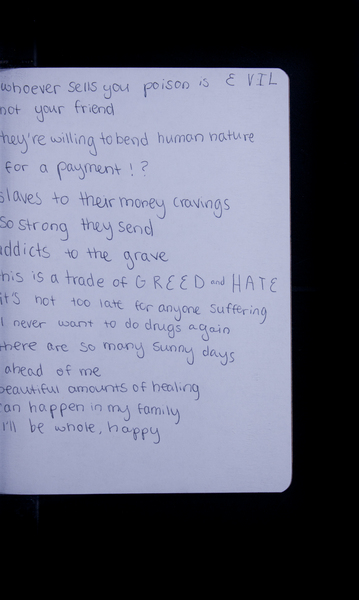 whoever sells you poison is EVIL
not your friend
they're willing to bend human nature
for a payment!?
slaves to their money cravings
so strong they send
addicts to the grave
this is a trade of GREED and HATE
it's not too late for anyone suffering
I never want to do drugs again
there are so many sunny days
ahead of me
beautiful amounts of healing
can happen in my family
I'll be whole, happy